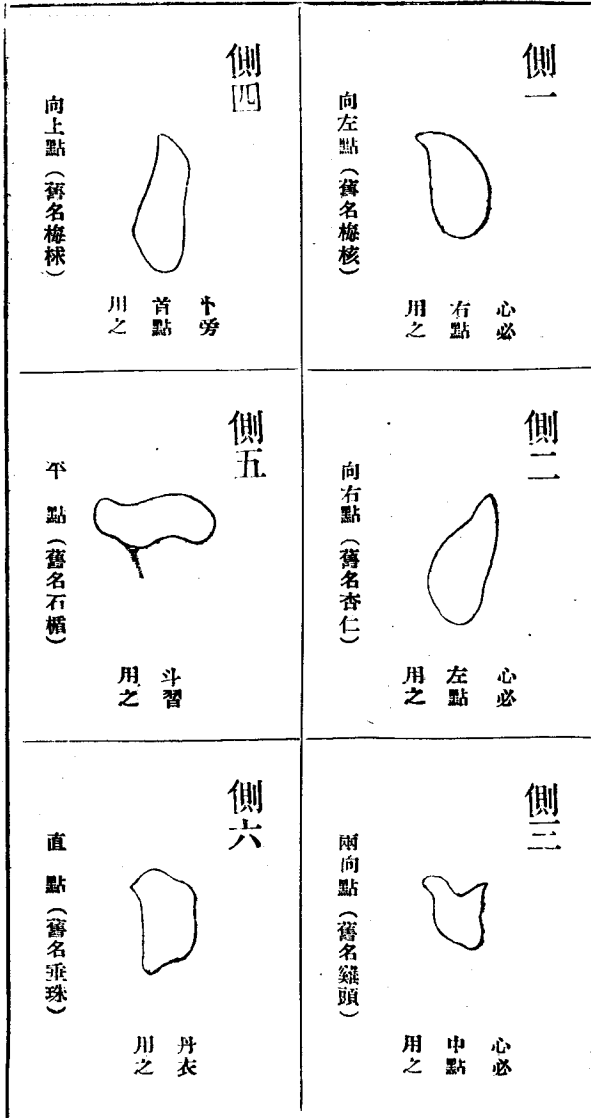 側一
向左點（舊名梅核）
心必
右點
用之
側二
向右點（舊名杏仁）
心必
左點
用之
側三
兩向點（舊名雞頭）
心必
中點
用之
側四
向上點（舊名梅梂）
忄旁
首點
用之
側五
平點（舊名石楯）
斗習
用之
側六
直點（舊名垂珠）
丹衣
用之